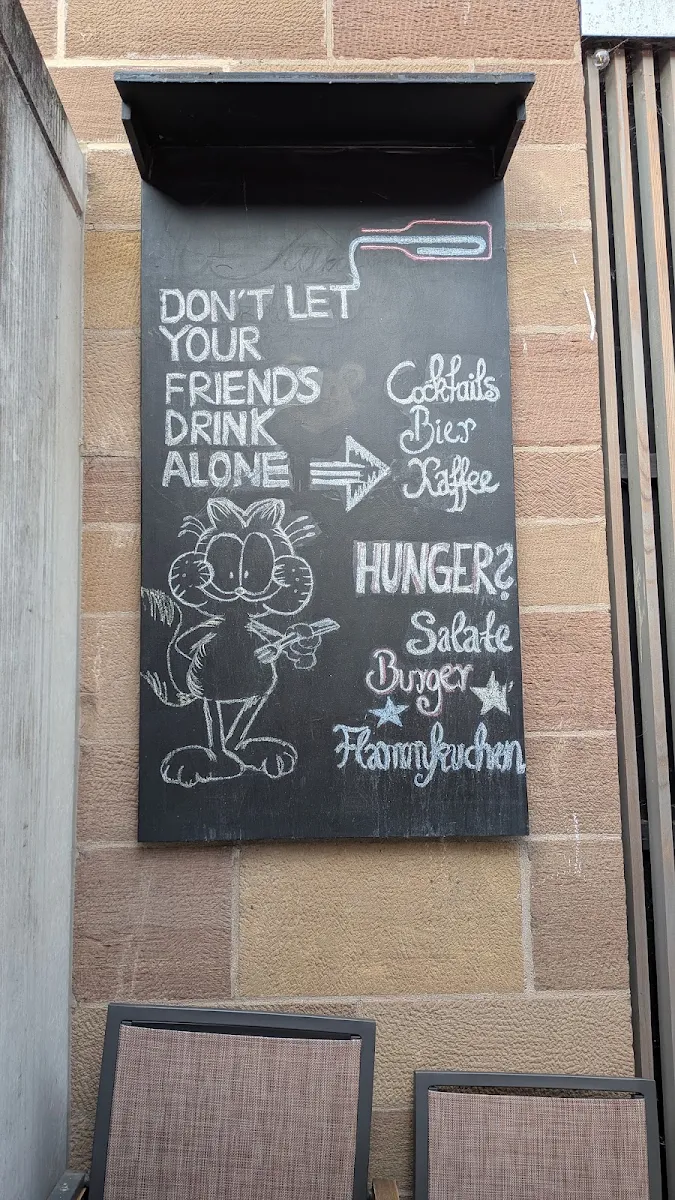 DON'T LET
YOUR
FRIENDS
DRINK
ALONE
Cocktails
Bier
Kaffee
HUNGER?
Salate
Burger
Flammkuchen